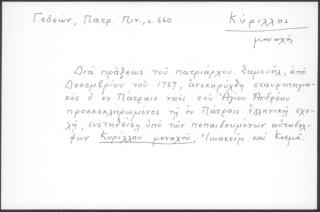 Γεδεών, Πατρ. Πιν., σ. 660
Κύριλλος
μοναχός
Διά πράξεως τοῦ πατριάρχου Σαμουήλ, ἀπό
Δεκεμβρίου τοῦ 1767, ἀνεκηρύχθη σταυροπηγια-
κός ὁ ἐν Πάτραις ναός τοῦ Ἁγίου Ἀνδρέου
προσκεκληρωμένος τῇ ἐν Πάτραις ἑλληνικῇ σχο-
λῇ, συστηθείσῃ ὑπό τῶν πεπαιδευμένων αὐταδέλ-
φων Κυρίλλου μοναχοῦ, Ἰωακείμ καί Κοσμᾶ.